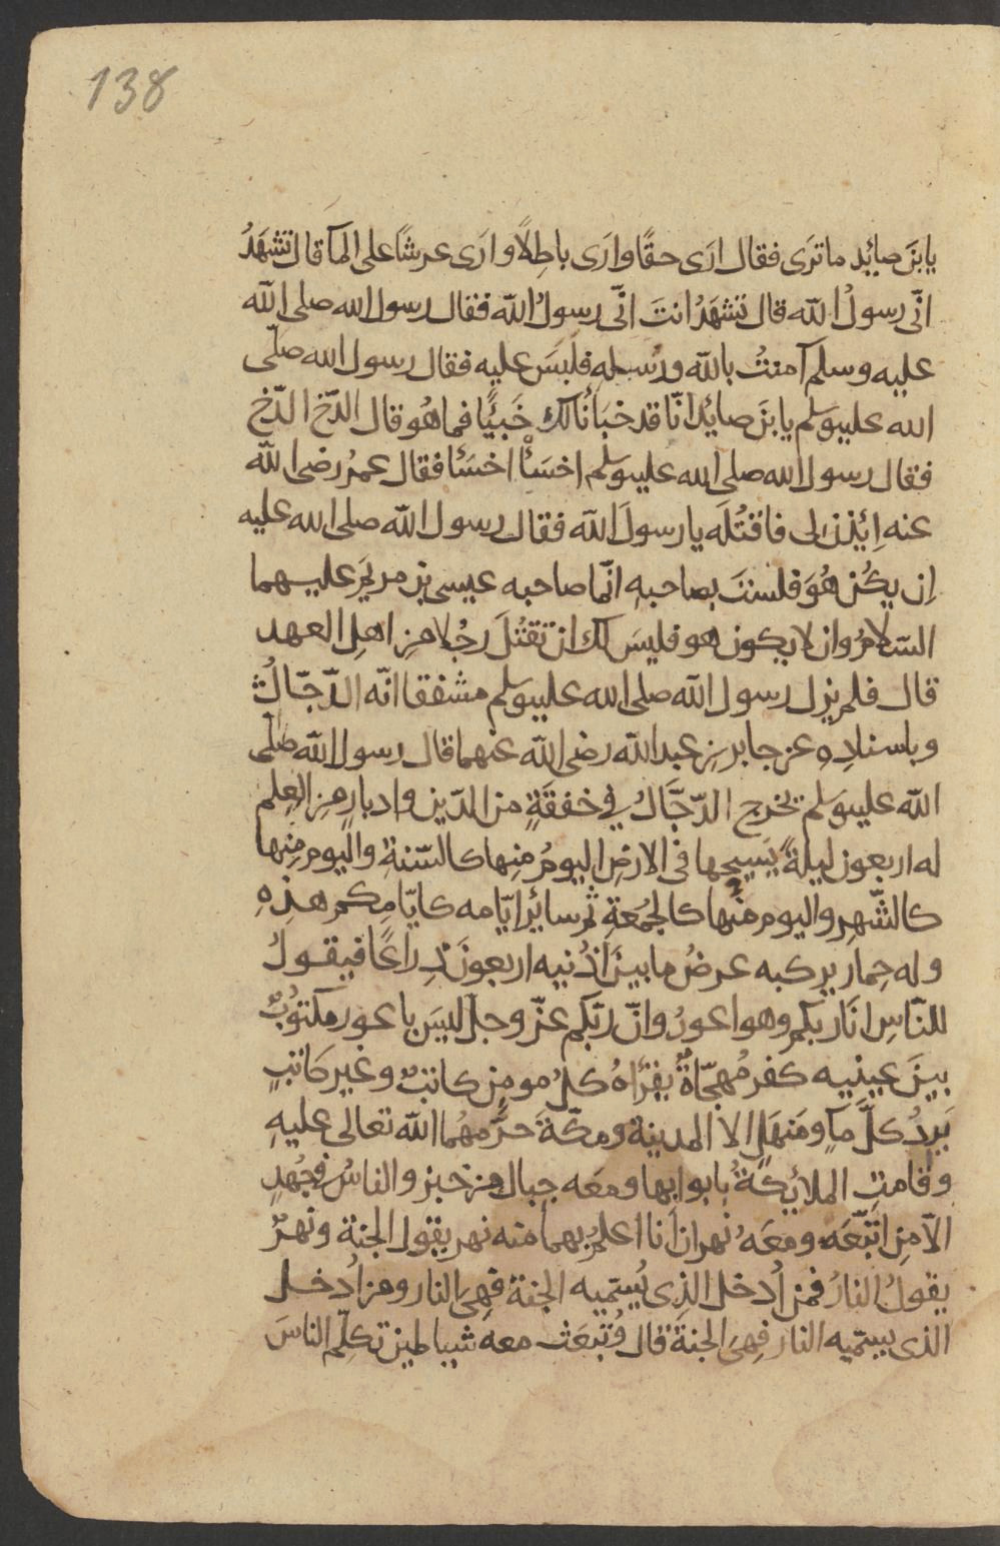 138
يا بنَ صايُد ما ترَى فقال ارَى حقًا وارَى باطِلًا وارَى عرشًا على المآ قال تشهَدُ
انّى رسولُ الله قال تشهَدُ انتَ انّى رسولُ الله فقال رسول الله صلى الله
عليه وسلم آمنتُ بالله ورُسلِه فلبسَ عليه فقال رسول الله صلّى
الله عليه وسلم يا بنَ صائد انّا قد خبَأنا لك خَبئًا فما هُو قال الدّخ الدّخ
فقال رسول الله صلى الله عليه وسلم اخسَأْ اخسَئا فقال عمرُ رضى الله
عنه اِئذن لى فاقتُلَه يا رسولَ الله فقال رسول الله صلى الله عليه
اِن يكُن هُوَ فلستَ بصاحبِه انّما صاحبه عيسى بن مريَم عليهما
السّلامُ وان لا يكون هو فليسَ لك ان تقتُلَ رجُلا مِن اهلِ العهد
قال فلم يزل رسول الله صلى الله عليه وسلم مشفقا انّه الدّجّالُ
وباسنادِهِ عن جابر بنِ عبد الله رضى الله عنهما قال رسول الله صلّى
الله عليه وسلم يخرج الدّجَّالُ فى خفقَةٍ من الدّين وادبارٍ مِن العِلم
له اربعون ليلةً يَسيحها فى الارضِ اليومُ مِنها كالسّنةِ واليوم مِنها
كالشّهرِ واليوم منها كالجُمُعةِ ثم سائرُ ايّامه كايّامِكم هذِهِ
وله حِمار يركبه عرضُ ما بينَ اُذُنيه اربعونَ ذِراعًا فيقولُ
للنّاسِ انَا ربكم وهو اعورُ وانّ ربّكم عزّ وجلّ ليسَ باعور مكتوُبٌ
بينَ عينيه كفر مُهجّاةٌ يقرَاهُ كلُ مومِنٍ كاتبٌ وغير كَاتبٍ
يَردُ كلَّ مآٍ ومَنهَلٍ الا المدينة ومكّةَ حرّمهُما الله تعالى عليهِ
وقامتِ الملائكةُ بابوابها ومعَه جبال من خبز والناسُ فى جُهدٍ
الّا مِن اتبّعَه ومعَهُ نهران انا اعلمُ بهما منه نهر يقول الجنة ونهرٌ
يقولُ النارُ فمن اُدخل الذِى يُسمّيه الجنة فهِىَ النار ومن اُدخل
الذى يسمّيه النار فهِىَ الجنةُ قال وتُبعَث معه شياطين تكلّم الناسَ